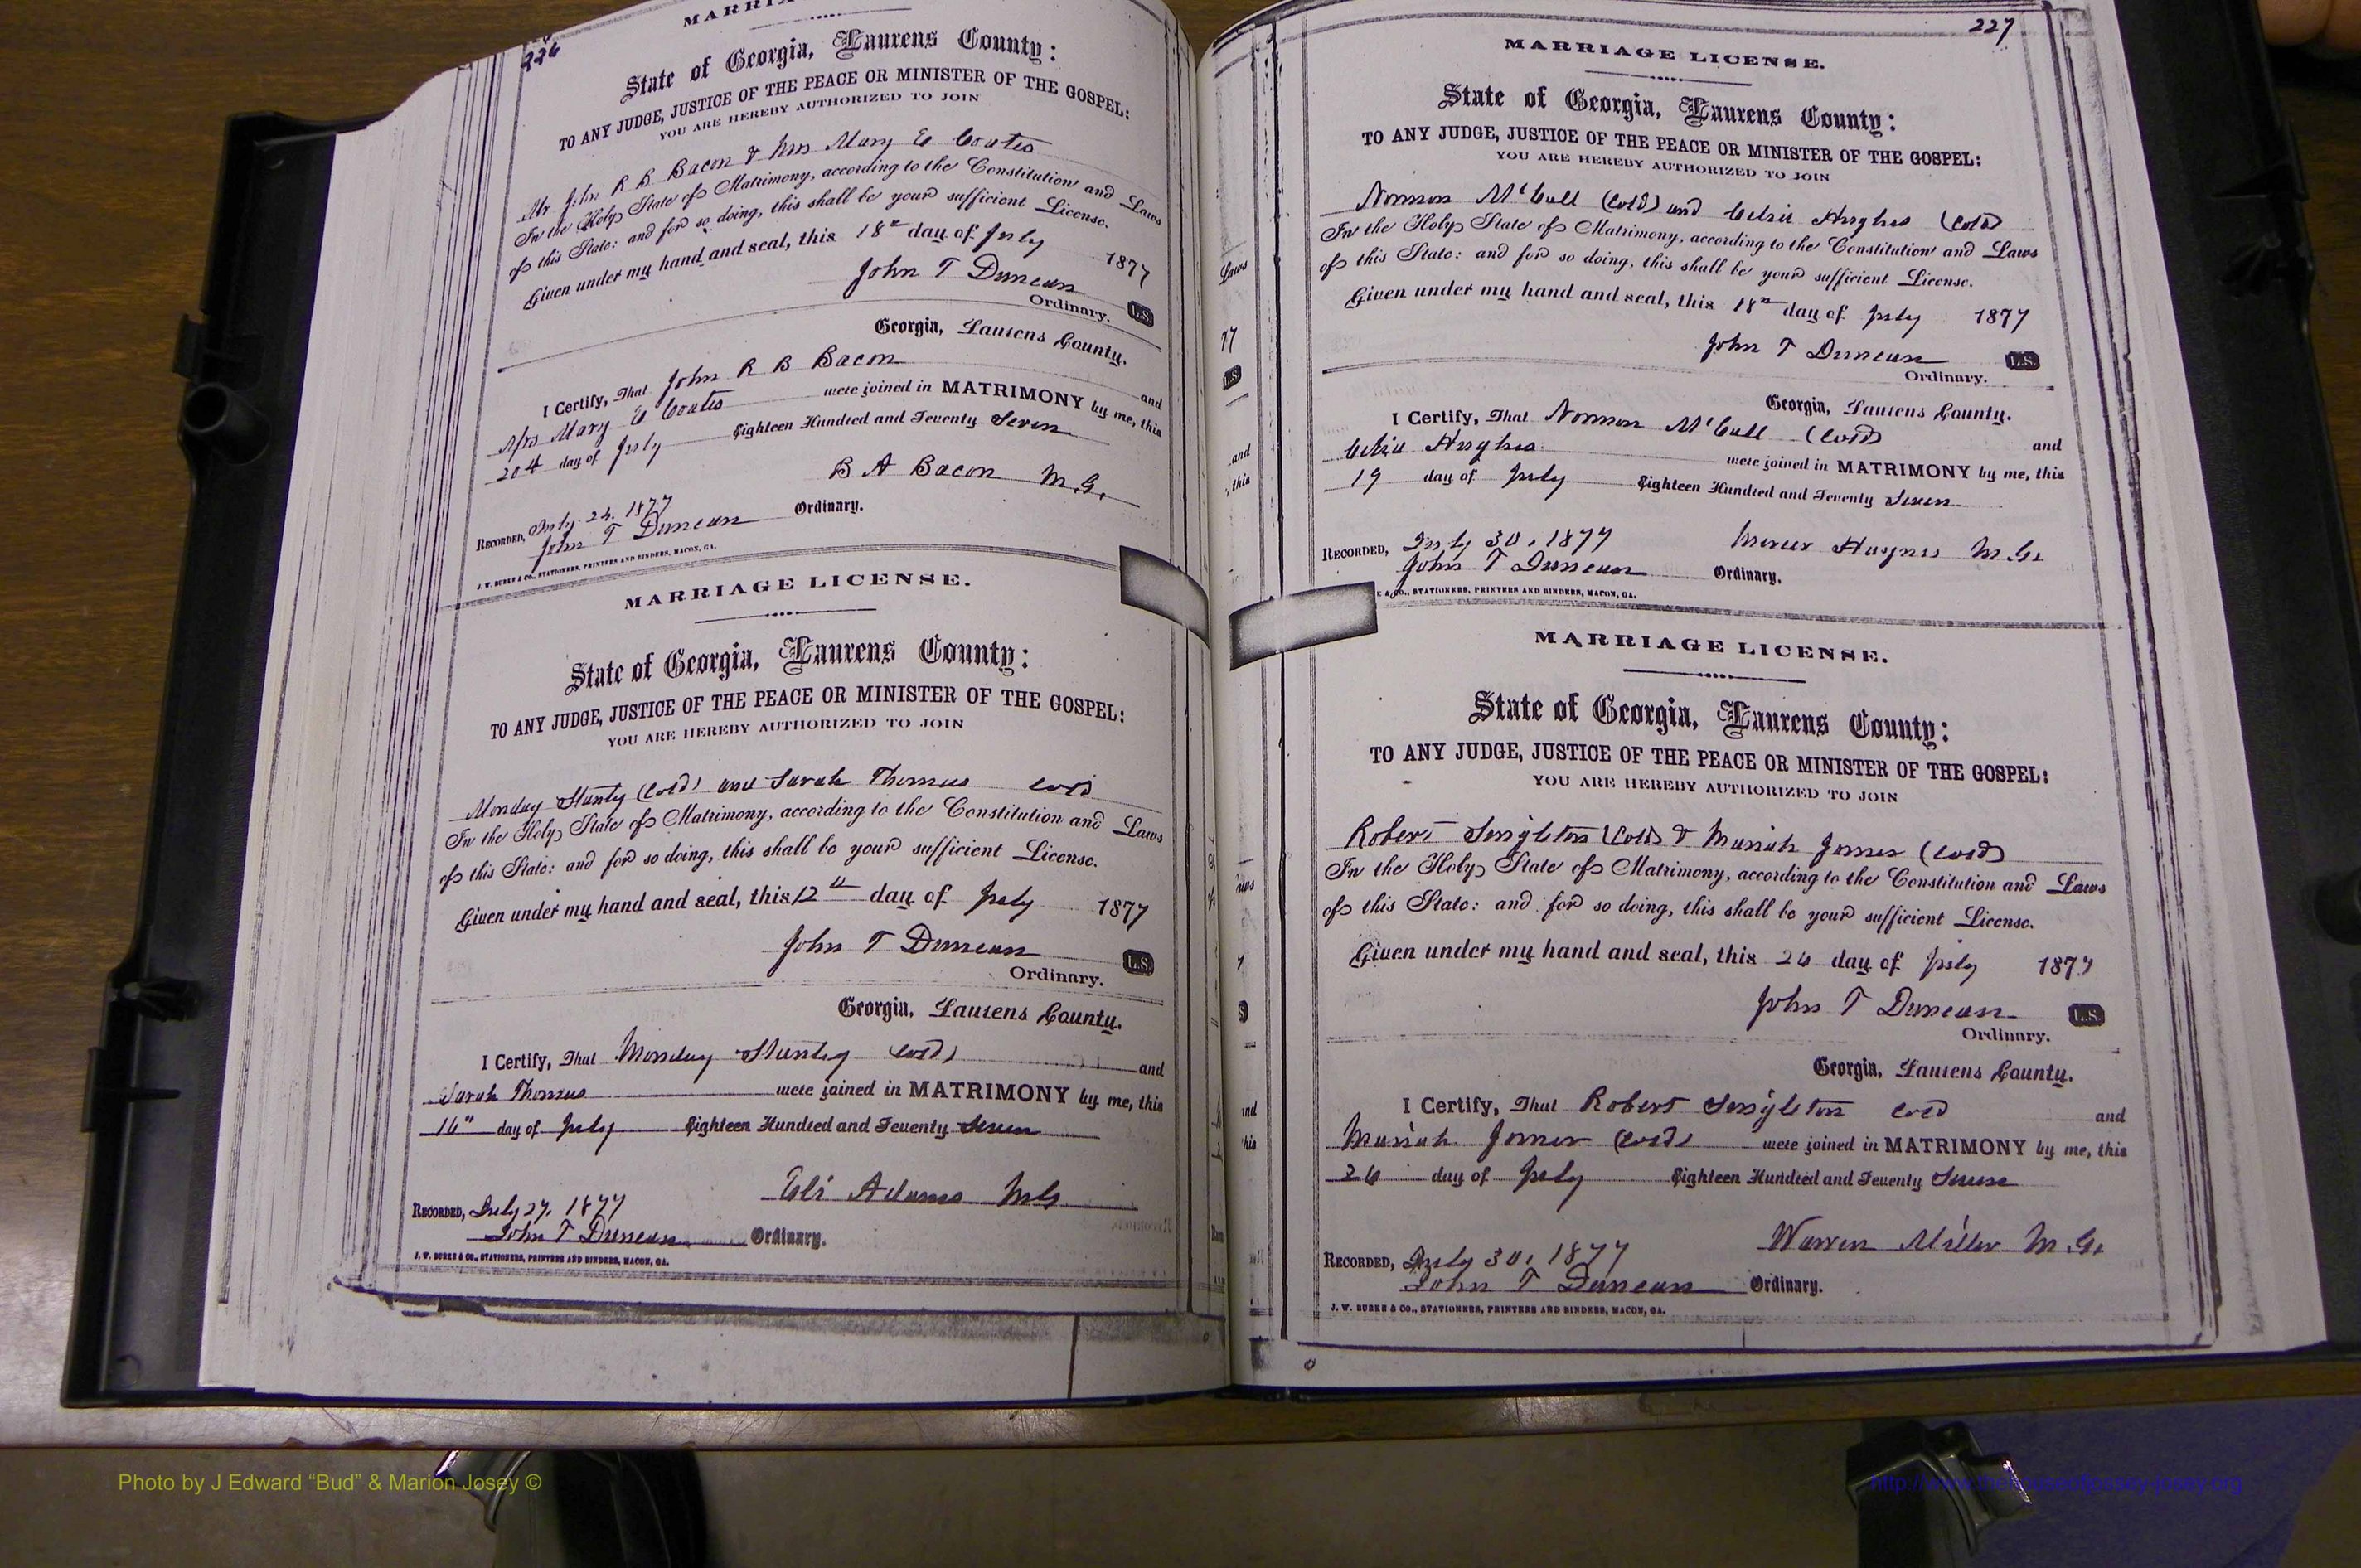 226
MARRIA
State of Georgia, Laurens County:
TO ANY JUDGE, JUSTICE OF THE PEACE OR MINISTER OF THE GOSPEL:
YOU ARE HEREBY AUTHORIZED TO JOIN
Mr John R B Bacon & Mrs Mary E Coates
In the Holy State of Matrimony, according to the Constitution and Laws
of this State: and for so doing, this shall be your sufficient License.
Given under my hand and seal, this 18th day of July 1877
John T Duncan
Ordinary. L.S.
Georgia, Laurens County.
I Certify, That John R B Bacon and
Mrs Mary E Coates were joined in MATRIMONY by me, this
20th day of July Eighteen Hundred and Seventy Seven
B A Bacon M.G.
RECORDED, July 24, 1877
John T Duncan Ordinary.
J. W. BURKE & CO., STATIONERS, PRINTERS AND BINDERS, MACON, GA.
MARRIAGE LICENSE.
State of Georgia, Laurens County:
TO ANY JUDGE, JUSTICE OF THE PEACE OR MINISTER OF THE GOSPEL:
YOU ARE HEREBY AUTHORIZED TO JOIN
Monday (Cold) and Sarah Thomas Cold
In the Holy State of Matrimony, according to the Constitution and Laws
of this State: and for so doing, this shall be your sufficient License.
Given under my hand and seal, this 12th day of July 1877
John T Duncan
Ordinary. L.S.
Georgia, Laurens County.
I Certify, That Monday Cold) and
Sarah Thomas were joined in MATRIMONY by me, this
day of July Eighteen Hundred and Seventy Seven
Eli Adams MG
RECORDED, July 27, 1877
John T Duncan Ordinary.
J. W. BURKE & CO., STATIONERS, PRINTERS AND BINDERS, MACON, GA.
227
MARRIAGE LICENSE.
State of Georgia, Laurens County:
TO ANY JUDGE, JUSTICE OF THE PEACE OR MINISTER OF THE GOSPEL:
YOU ARE HEREBY AUTHORIZED TO JOIN
Norman McCall (Cold) and Celia Hughes (Cold)
In the Holy State of Matrimony, according to the Constitution and Laws
of this State: and for so doing, this shall be your sufficient License.
Given under my hand and seal, this 18th day of July 1877
John T Duncan L.S.
Ordinary.
Georgia, Laurens County.
I Certify, That Norman McCall (Cold) and
Celia Hughes were joined in MATRIMONY by me, this
19 day of July Eighteen Hundred and Seventy Seven
Haynes M.G.
RECORDED, July 30, 1877
John T Duncan Ordinary.
& CO., STATIONERS, PRINTERS AND BINDERS, MACON, GA.
MARRIAGE LICENSE.
State of Georgia, Laurens County:
TO ANY JUDGE, JUSTICE OF THE PEACE OR MINISTER OF THE GOSPEL:
YOU ARE HEREBY AUTHORIZED TO JOIN
Robert Singleton (Cold) & Mariah Joiner (Cold)
In the Holy State of Matrimony, according to the Constitution and Laws
of this State: and for so doing, this shall be your sufficient License.
Given under my hand and seal, this 26 day of July 1877
John T Duncan L.S.
Ordinary.
Georgia, Laurens County.
I Certify, That Robert Singleton Cold and
Mariah Joiner (Cold) were joined in MATRIMONY by me, this
26 day of July Eighteen Hundred and Seventy Seven
Warren Miller M.G.
RECORDED, July 30, 1877
John T Duncan Ordinary.
J. W. BURKE & CO., STATIONERS, PRINTERS AND BINDERS, MACON, GA.
Photo by J Edward “Bud” & Marion Josey ©
http://www.thehouseofjossey-josey.org